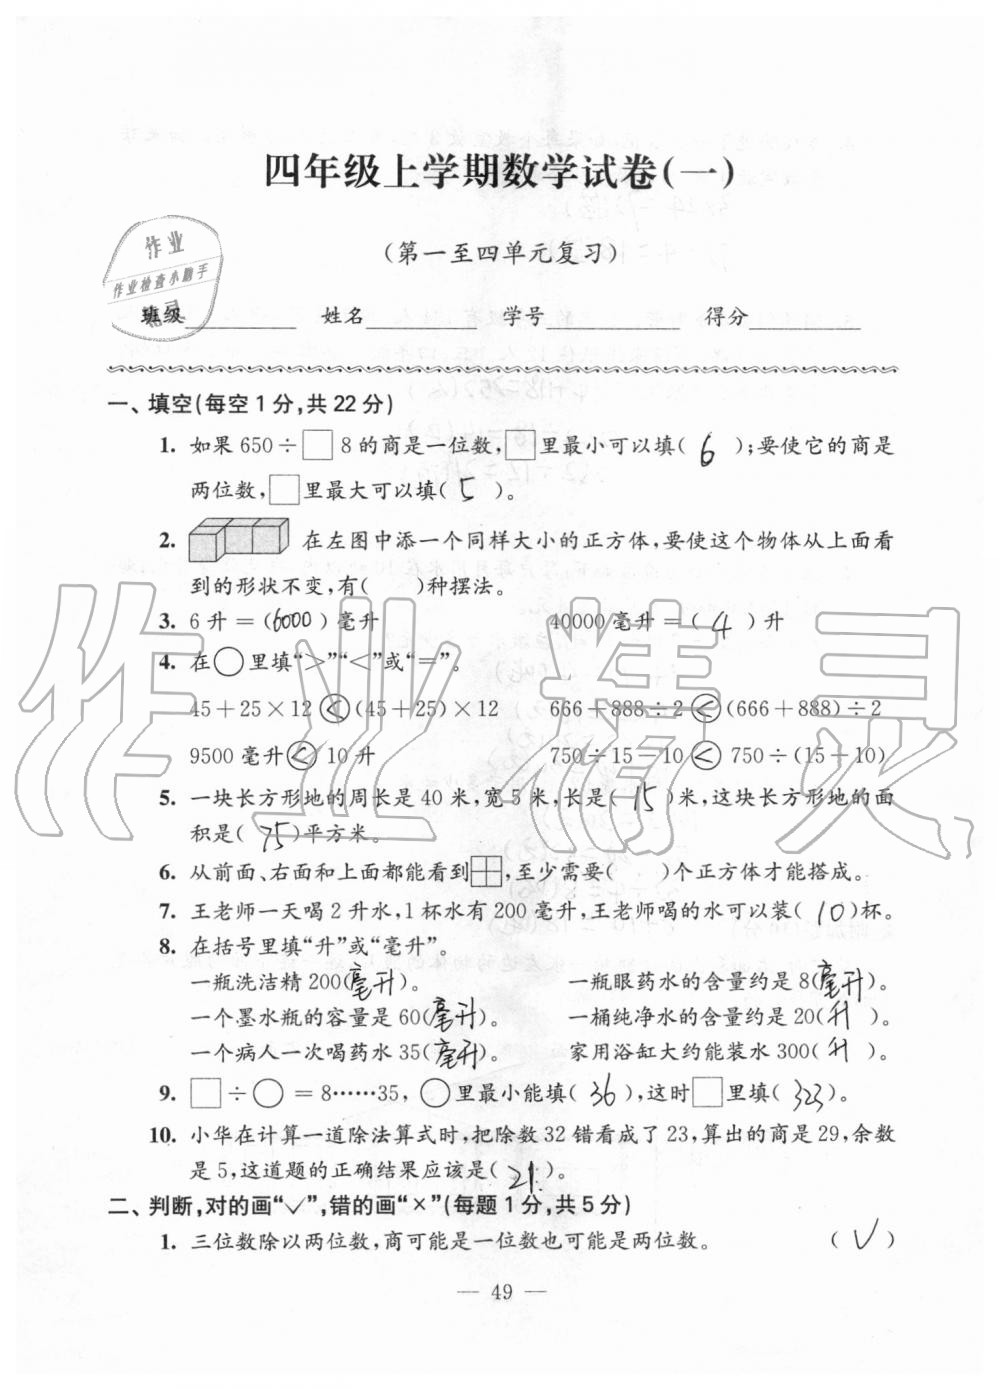 四年级上学期数学试卷(一)
(第一至四单元复习)
作业
作业检查小助手
精灵
班级 姓名 学号 得分
一、填空(每空1分,共22分)
1. 如果650÷□8的商是一位数,□里最小可以填( 6 );要使它的商是
两位数,□里最大可以填( 5 )。
2. 在左图中添一个同样大小的正方体,要使这个物体从上面看
到的形状不变,有( )种摆法。
3. 6升=(6000)毫升 40000毫升=( 4 )升
4. 在○里填“>”“<”或“=”。
45+25×12<(45+25)×12 666+888÷2<(666+888)÷2
9500毫升<10升 750÷15-10<750÷(15+10)
5. 一块长方形地的周长是40米,宽5米,长是( 15 )米,这块长方形地的面
积是( 75 )平方米。
6. 从前面、右面和上面都能看到田,至少需要( )个正方体才能搭成。
7. 王老师一天喝2升水,1杯水有200毫升,王老师喝的水可以装( 10 )杯。
8. 在括号里填“升”或“毫升”。
一瓶洗洁精200(毫升)。 一瓶眼药水的含量约是8(毫升)。
一个墨水瓶的容量是60(毫升)。 一桶纯净水的含量约是20(升)。
一个病人一次喝药水35(毫升)。 家用浴缸大约能装水300(升)。
9. □÷○=8……35,○里最小能填( 36 ),这时□里填( 323 )。
10. 小华在计算一道除法算式时,把除数32错看成了23,算出的商是29,余数
是5,这道题的正确结果应该是( 21 )。
二、判断,对的画“√”,错的画“×”(每题1分,共5分)
1. 三位数除以两位数,商可能是一位数也可能是两位数。 ( √ )
— 49 —
作业精灵